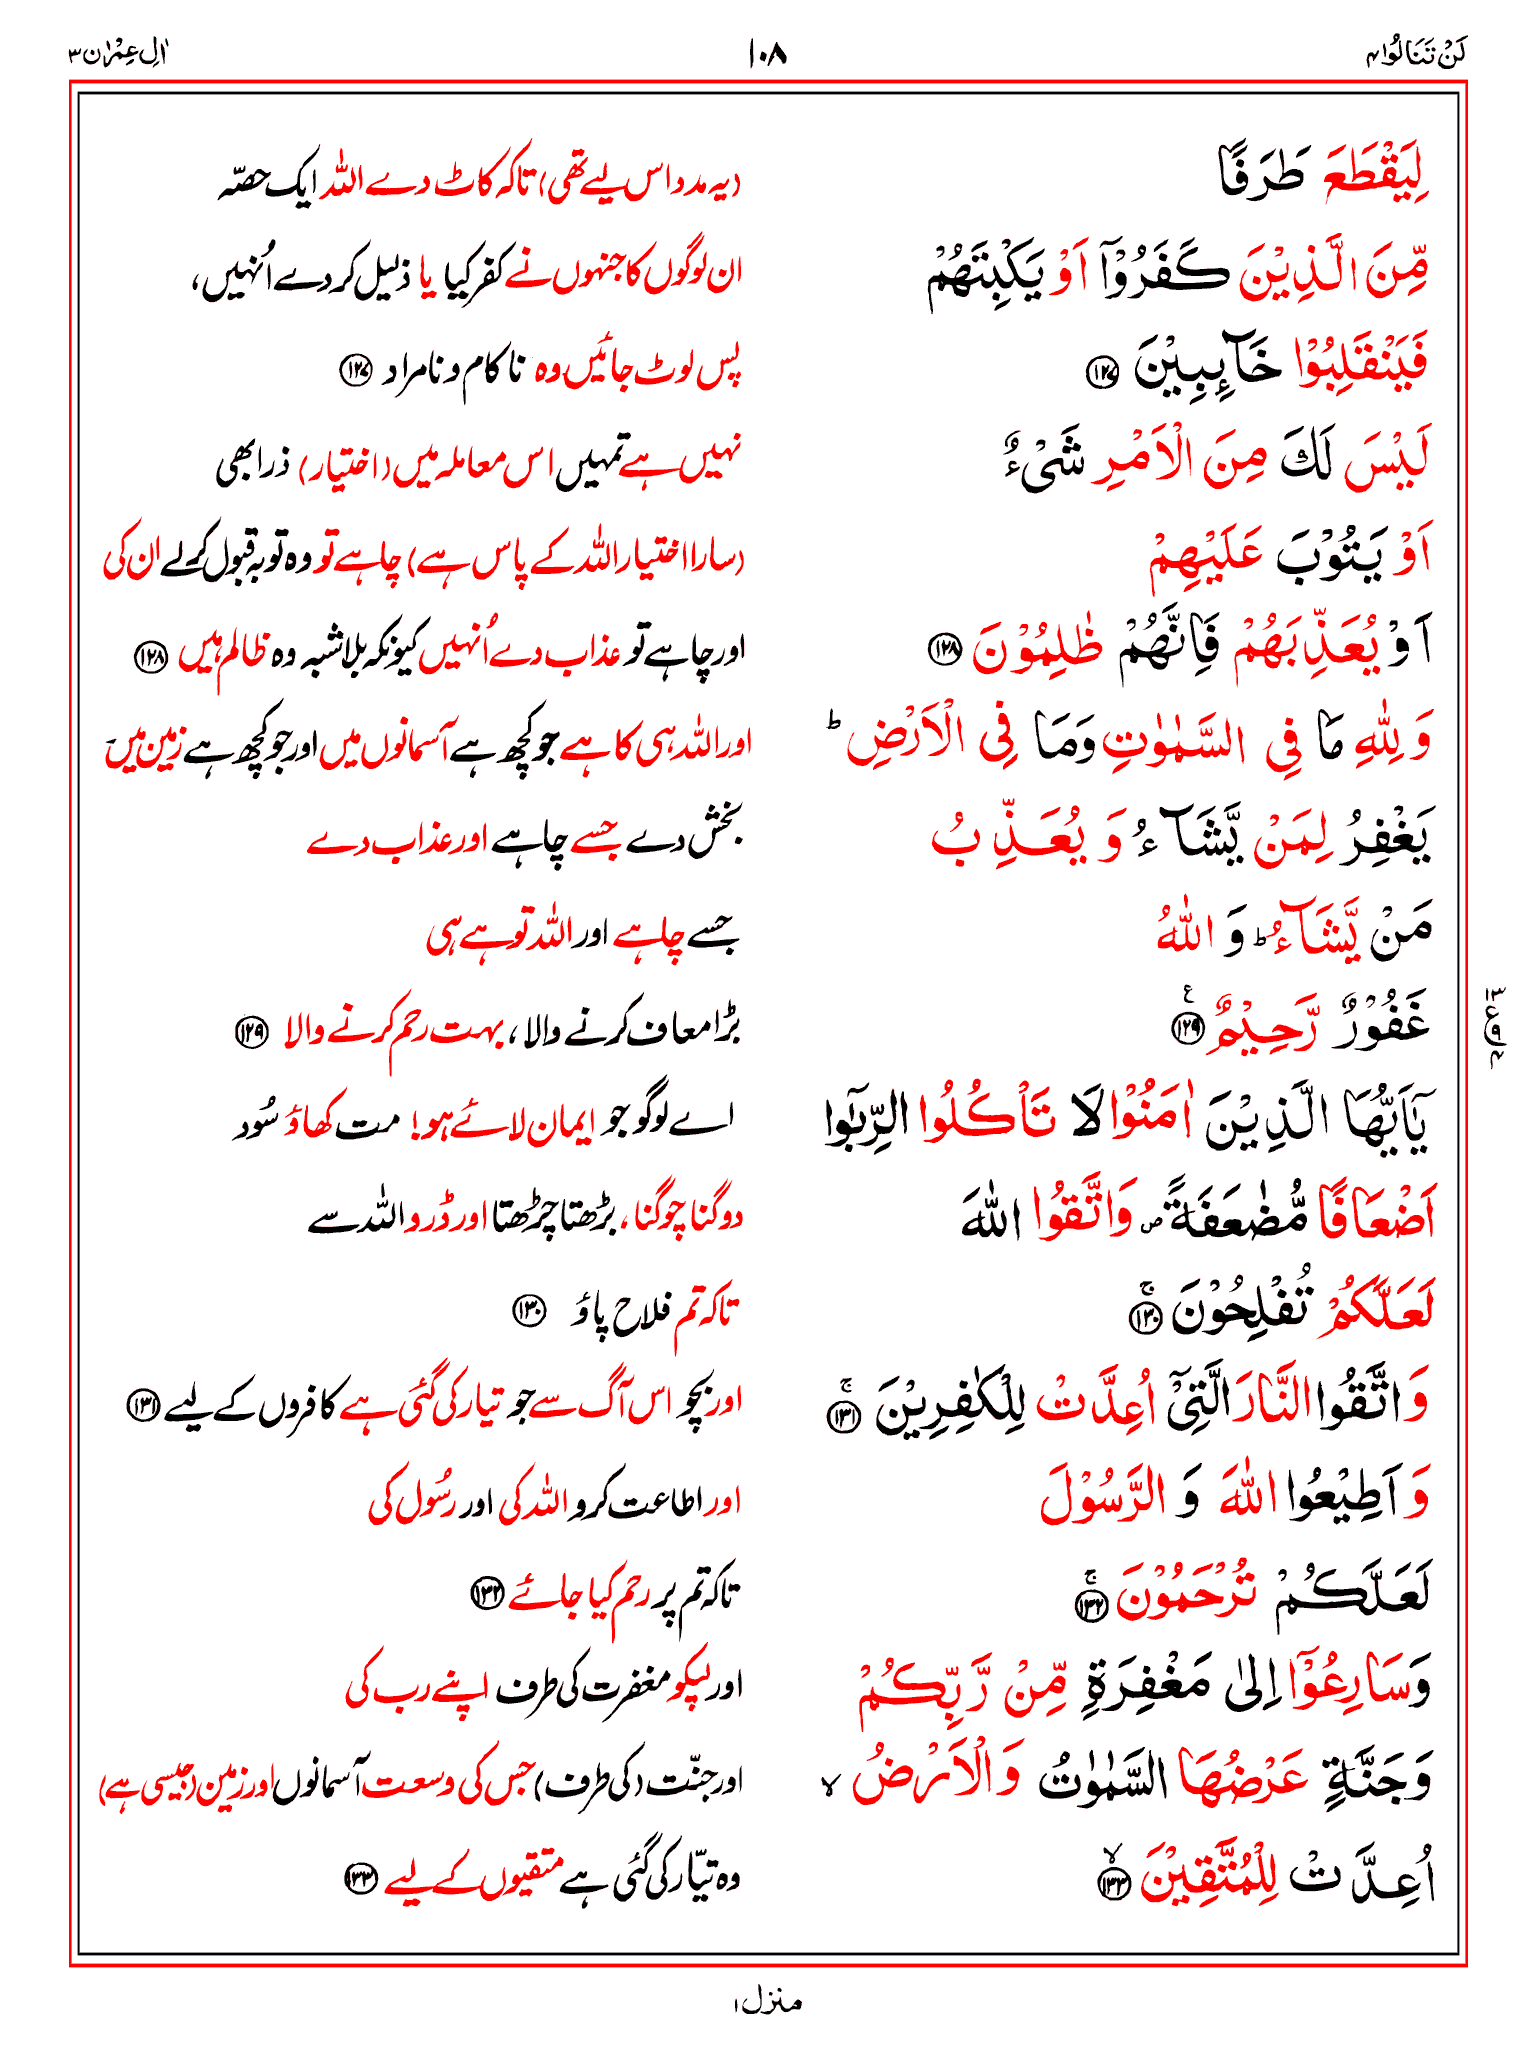 لَنْ تَنَالُوا ۴
۱۰۸
اٰلِ عِمْرٰن ۳
لِيَقْطَعَ طَرَفًا
(یہ مدد اس لیے تھی) تاکہ کاٹ دے اللہ ایک حصّہ
مِّنَ الَّذِيْنَ كَفَرُوْۤا اَوْ يَكْبِتَهُمْ
ان لوگوں کا جنہوں نے کفر کیا یا ذلیل کر دے اُنہیں،
فَيَنْقَلِبُوْا خَآىِٕبِيْنَ ۝۱۲۷
پس لوٹ جائیں وہ ناکام و نامراد ۝۱۲۷
لَيْسَ لَكَ مِنَ الْاَمْرِ شَىْءٌ
نہیں ہے تمہیں اس معاملہ میں (اختیار) ذرا بھی
اَوْ يَتُوْبَ عَلَيْهِمْ
(سارا اختیار اللہ کے پاس ہے) چاہے تو وہ توبہ قبول کرلے ان کی
اَوْ يُعَذِّبَهُمْ فَاِنَّهُمْ ظٰلِمُوْنَ ۝۱۲۸
اور چاہے تو عذاب دے اُنہیں کیونکہ بلاشبہ وہ ظالم ہیں ۝۱۲۸
وَلِلّٰهِ مَا فِى السَّمٰوٰتِ وَمَا فِى الْاَرْضِ ؕ
اور اللہ ہی کا ہے جو کچھ ہے آسمانوں میں اور جو کچھ ہے زمین میں۔
يَغْفِرُ لِمَنْ يَّشَآءُ وَ يُعَذِّبُ
بخش دے جسے چاہے اور عذاب دے
مَنْ يَّشَآءُ ؕ وَ اللّٰهُ
جسے چاہے اور اللہ تو ہے ہی
غَفُوْرٌ رَّحِيْمٌ ۝۱۲۹ ع
بڑا معاف کرنے والا، بہت رحم کرنے والا ۝۱۲۹
يٰۤاَيُّهَا الَّذِيْنَ اٰمَنُوْا لَا تَاْكُلُوا الرِّبٰۤوا
اے لوگو جو ایمان لائے ہو! مت کھاؤ سُود
اَضْعَافًا مُّضٰعَفَةً ۪ وَاتَّقُوا اللّٰهَ
دوگنا چوگنا، بڑھتا چڑھتا اور ڈرو اللہ سے
لَعَلَّكُمْ تُفْلِحُوْنَ ۝۱۳۰ ۚ
تاکہ تم فلاح پاؤ ۝۱۳۰
وَاتَّقُوا النَّارَ الَّتِىْۤ اُعِدَّتْ لِلْكٰفِرِيْنَ ۝۱۳۱ ۚ
اور بچو اس آگ سے جو تیار کی گئی ہے کافروں کے لیے ۝۱۳۱
وَاَطِيْعُوا اللّٰهَ وَ الرَّسُوْلَ
اور اطاعت کرو اللہ کی اور رسُول کی
لَعَلَّكُمْ تُرْحَمُوْنَ ۝۱۳۲ ۚ
تاکہ تم پر رحم کیا جائے ۝۱۳۲
وَسَارِعُوْۤا اِلٰى مَغْفِرَةٍ مِّنْ رَّبِّكُمْ
اور لپکو مغفرت کی طرف اپنے رب کی
وَجَنَّةٍ عَرْضُهَا السَّمٰوٰتُ وَالْاَرْضُ ۙ
اور جنّت (کی طرف) جس کی وسعت آسمانوں اور زمین (جیسی ہے)
اُعِدَّتْ لِلْمُتَّقِيْنَ ۝۱۳۳ ۙ
وہ تیّار کی گئی ہے متقیوں کے لیے ۝۱۳۳
منزل ۱